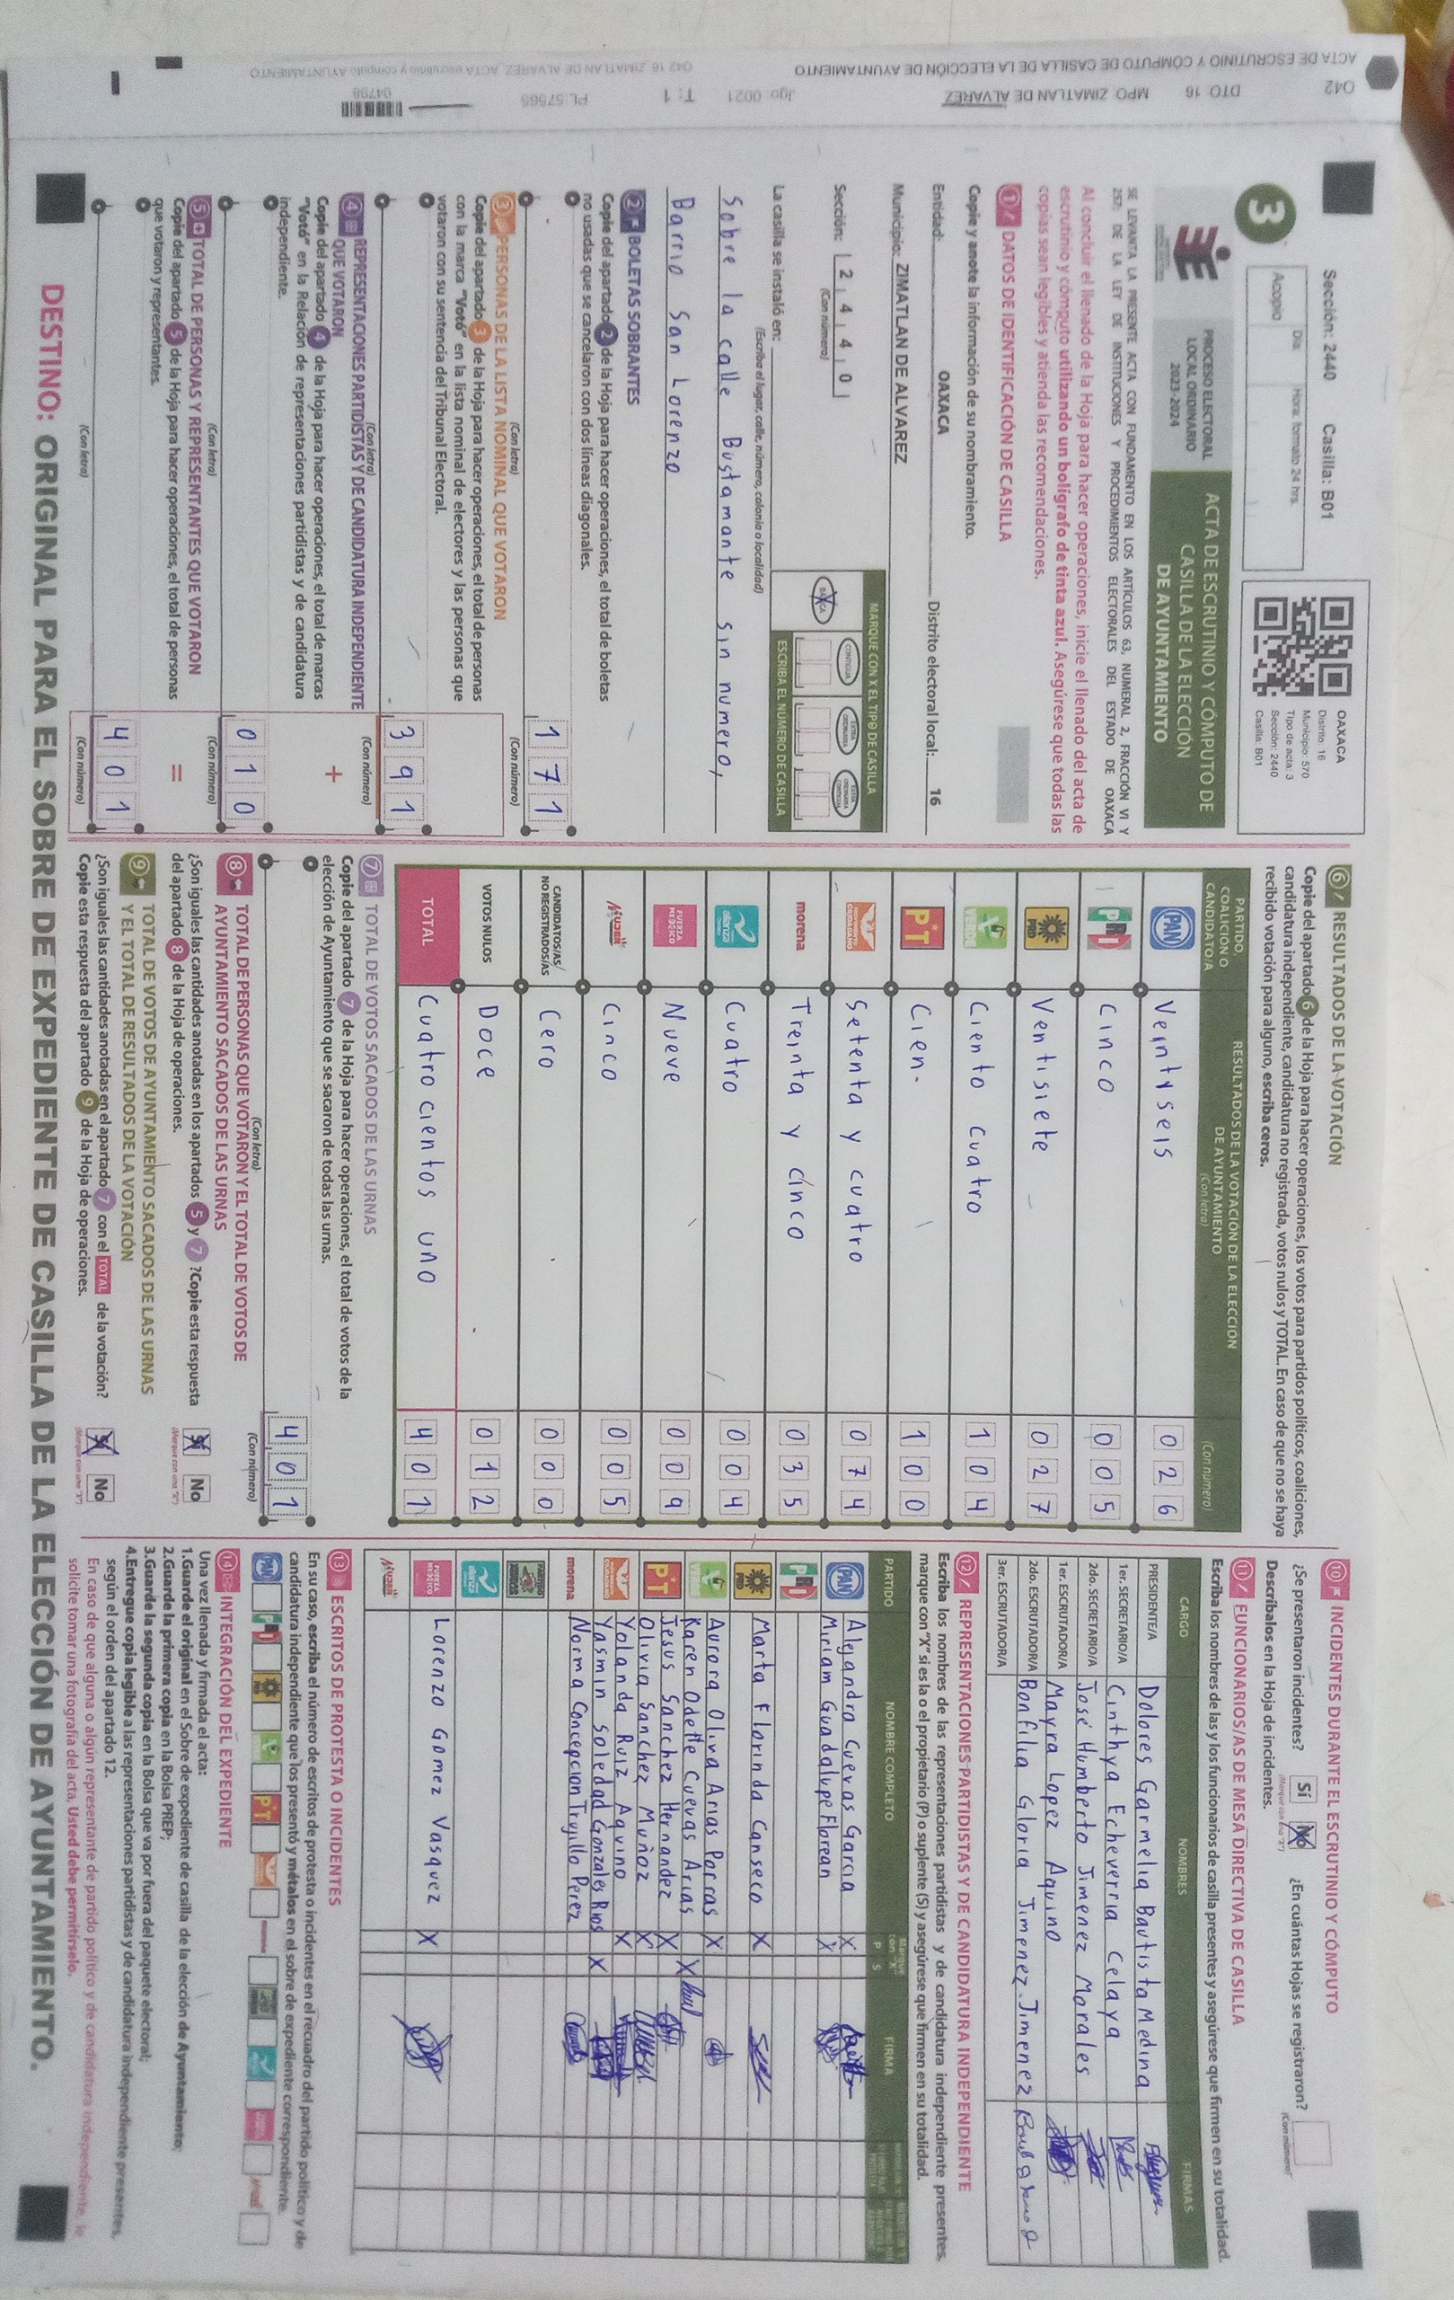 042 DTO 16 MPO. ZIMATLAN DE ALVAREZ Jgo: 0021 T: 1 PL:57565 04798
ACTA DE ESCRUTINIO Y CÓMPUTO DE CASILLA DE LA ELECCIÓN DE AYUNTAMIENTO
042 16 ZIMATLAN DE ALVAREZ. ACTA escrutinio y computo AYUNTAMIENTO
Sección: 2440 Casilla: B01
Día: Hora: formato 24 hrs.
Acopio
3
OAXACA
Distrito: 16
Municipio: 570
Tipo de acta: 3
Sección: 2440
Casilla: B01
PROCESO ELECTORAL
LOCAL ORDINARIO
2023-2024
ACTA DE ESCRUTINIO Y CÓMPUTO DE
CASILLA DE LA ELECCIÓN
DE AYUNTAMIENTO
SE LEVANTA LA PRESENTE ACTA CON FUNDAMENTO EN LOS ARTÍCULOS 63, NUMERAL 2, FRACCIÓN VI Y
257; DE LA LEY DE INSTITUCIONES Y PROCEDIMIENTOS ELECTORALES DEL ESTADO DE OAXACA
Al concluir el llenado de la Hoja para hacer operaciones, inicie el llenado del acta de
escrutinio y cómputo utilizando un bolígrafo de tinta azul. Asegúrese que todas las
copias sean legibles y atienda las recomendaciones.
1 DATOS DE IDENTIFICACIÓN DE CASILLA
Copie y anote la información de su nombramiento.
Entidad: OAXACA Distrito electoral local: 16
Municipio: ZIMATLAN DE ALVAREZ
MARQUE CON X EL TIPO DE CASILLA
Sección: 2 4 4 0
(Con número)
BÁSICA X
CONTIGUA
ESCRIBA EL NÚMERO DE CASILLA
La casilla se instaló en:
(Escriba el lugar, calle, número, colonia o localidad)
Sobre la calle Bustamante sin numero,
Barrio San Lorenzo
2 BOLETAS SOBRANTES
Copie del apartado 2 de la Hoja para hacer operaciones, el total de boletas
no usadas que se cancelaron con dos líneas diagonales.
1 7 1
(Con letra) (Con número)
3 PERSONAS DE LA LISTA NOMINAL QUE VOTARON
Copie del apartado 3 de la Hoja para hacer operaciones, el total de personas
con la marca "Votó" en la lista nominal de electores y las personas que
votaron con su sentencia del Tribunal Electoral.
3 9 1
(Con letra) (Con número)
4 REPRESENTACIONES PARTIDISTAS Y DE CANDIDATURA INDEPENDIENTE
QUE VOTARON
Copie del apartado 4 de la Hoja para hacer operaciones, el total de marcas
"Votó" en la Relación de representaciones partidistas y de candidatura
independiente.
+
0 1 0
(Con letra) (Con número)
5 TOTAL DE PERSONAS Y REPRESENTANTES QUE VOTARON
Copie del apartado 5 de la Hoja para hacer operaciones, el total de personas
que votaron y representantes.
=
4 0 1
(Con letra) (Con número)
6 RESULTADOS DE LA VOTACIÓN
Copie del apartado 6 de la Hoja para hacer operaciones, los votos para partidos políticos, coaliciones,
candidatura independiente, candidatura no registrada, votos nulos y TOTAL. En caso de que no se haya
recibido votación para alguno, escriba ceros.
PARTIDO, COALICIÓN O CANDIDATO/A
RESULTADOS DE LA VOTACIÓN DE LA ELECCIÓN
DE AYUNTAMIENTO
(Con letra) (Con número)
PAN Veintiseis 0 2 6
PRI Cinco 0 0 5
PRD Ventisiete 0 2 7
VERDE Ciento cuatro 1 0 4
PT Cien. 1 0 0
MOVIMIENTO CIUDADANO Setenta y cuatro 0 7 4
morena Treinta y cinco 0 3 5
alianza Cuatro 0 0 4
FUERZA MÉXICO Nueve 0 0 9
MUJER Cinco 0 0 5
CANDIDATOS/AS/ NO REGISTRADOS/AS Cero 0 0 0
VOTOS NULOS Doce 0 1 2
TOTAL Cuatrocientos uno 4 0 1
7 TOTAL DE VOTOS SACADOS DE LAS URNAS
Copie del apartado 7 de la Hoja para hacer operaciones, el total de votos de la
elección de Ayuntamiento que se sacaron de todas las urnas.
4 0 1
(Con letra) (Con número)
8 TOTAL DE PERSONAS QUE VOTARON Y EL TOTAL DE VOTOS DE
AYUNTAMIENTO SACADOS DE LAS URNAS
¿Son iguales las cantidades anotadas en los apartados 5 y 7? Copie esta respuesta
del apartado 8 de la Hoja de operaciones.
Sí X No
(Marque con una "X")
9 TOTAL DE VOTOS DE AYUNTAMIENTO SACADOS DE LAS URNAS
Y EL TOTAL DE RESULTADOS DE LA VOTACIÓN
¿Son iguales las cantidades anotadas en el apartado 7 con el TOTAL de la votación?
Copie esta respuesta del apartado 9 de la Hoja de operaciones.
Sí X No
(Marque con una "X")
10 INCIDENTES DURANTE EL ESCRUTINIO Y CÓMPUTO
¿Se presentaron incidentes? Sí No X ¿En cuántas Hojas se registraron?
(Marque con una "X") (Con número)
Descríbalos en la Hoja de incidentes.
11 FUNCIONARIOS/AS DE MESA DIRECTIVA DE CASILLA
Escriba los nombres de las y los funcionarios de casilla presentes y asegúrese que firmen en su totalidad.
CARGO NOMBRES FIRMAS
PRESIDENTE/A Dolores Garmelia Bautista Medina
1er. SECRETARIO/A Cinthya Echeverria Celaya
2do. SECRETARIO/A José Humberto Jimenez Morales
1er. ESCRUTADOR/A Mayra Lopez Aquino
2do. ESCRUTADOR/A Bonfilia Gloria Jimenez Jimenez
3er. ESCRUTADOR/A
12 REPRESENTACIONES PARTIDISTAS Y DE CANDIDATURA INDEPENDIENTE
Escriba los nombres de las representaciones partidistas y de candidatura independiente presentes,
marque con "X" si es la o el propietario (P) o suplente (S) y asegúrese que firmen en su totalidad.
PARTIDO NOMBRE COMPLETO Marque con "X" P S FIRMA
PAN Alejandra Cuevas Garcia X
Miriam Guadalupe Florean X
PRI
PRD Marta Florinda Canseco X
VERDE Aurora Oliva Arias Porras X
Karen Odette Cuevas Arias X
PT Jesus Sanchez Hernandez X
Olivia Sanchez Muñoz X
MOVIMIENTO CIUDADANO Yolanda Ruiz Aquino X
Yasmin soledad Gonzales Rios X
morena Norma Concepcion Trujillo Perez
alianza
FUERZA MÉXICO Lorenzo Gomez Vasquez X
MUJER
13 ESCRITOS DE PROTESTA O INCIDENTES
En su caso, escriba el número de escritos de protesta o incidentes en el recuadro del partido político y de
candidatura independiente que los presentó y métalos en el sobre de expediente correspondiente.
14 INTEGRACIÓN DEL EXPEDIENTE
Una vez llenada y firmada el acta:
1.Guarde el original en el Sobre de expediente de casilla de la elección de Ayuntamiento;
2.Guarde la primera copia en la Bolsa PREP;
3.Guarde la segunda copia en la Bolsa que va por fuera del paquete electoral;
4.Entregue copia legible a las representaciones partidistas y de candidatura independiente presentes,
según el orden del apartado 12.
En caso de que alguna o algún representante de partido político y de candidatura independiente, le
solicite tomar una fotografía del acta. Usted debe permitírselo.
DESTINO: ORIGINAL PARA EL SOBRE DE EXPEDIENTE DE CASILLA DE LA ELECCIÓN DE AYUNTAMIENTO.